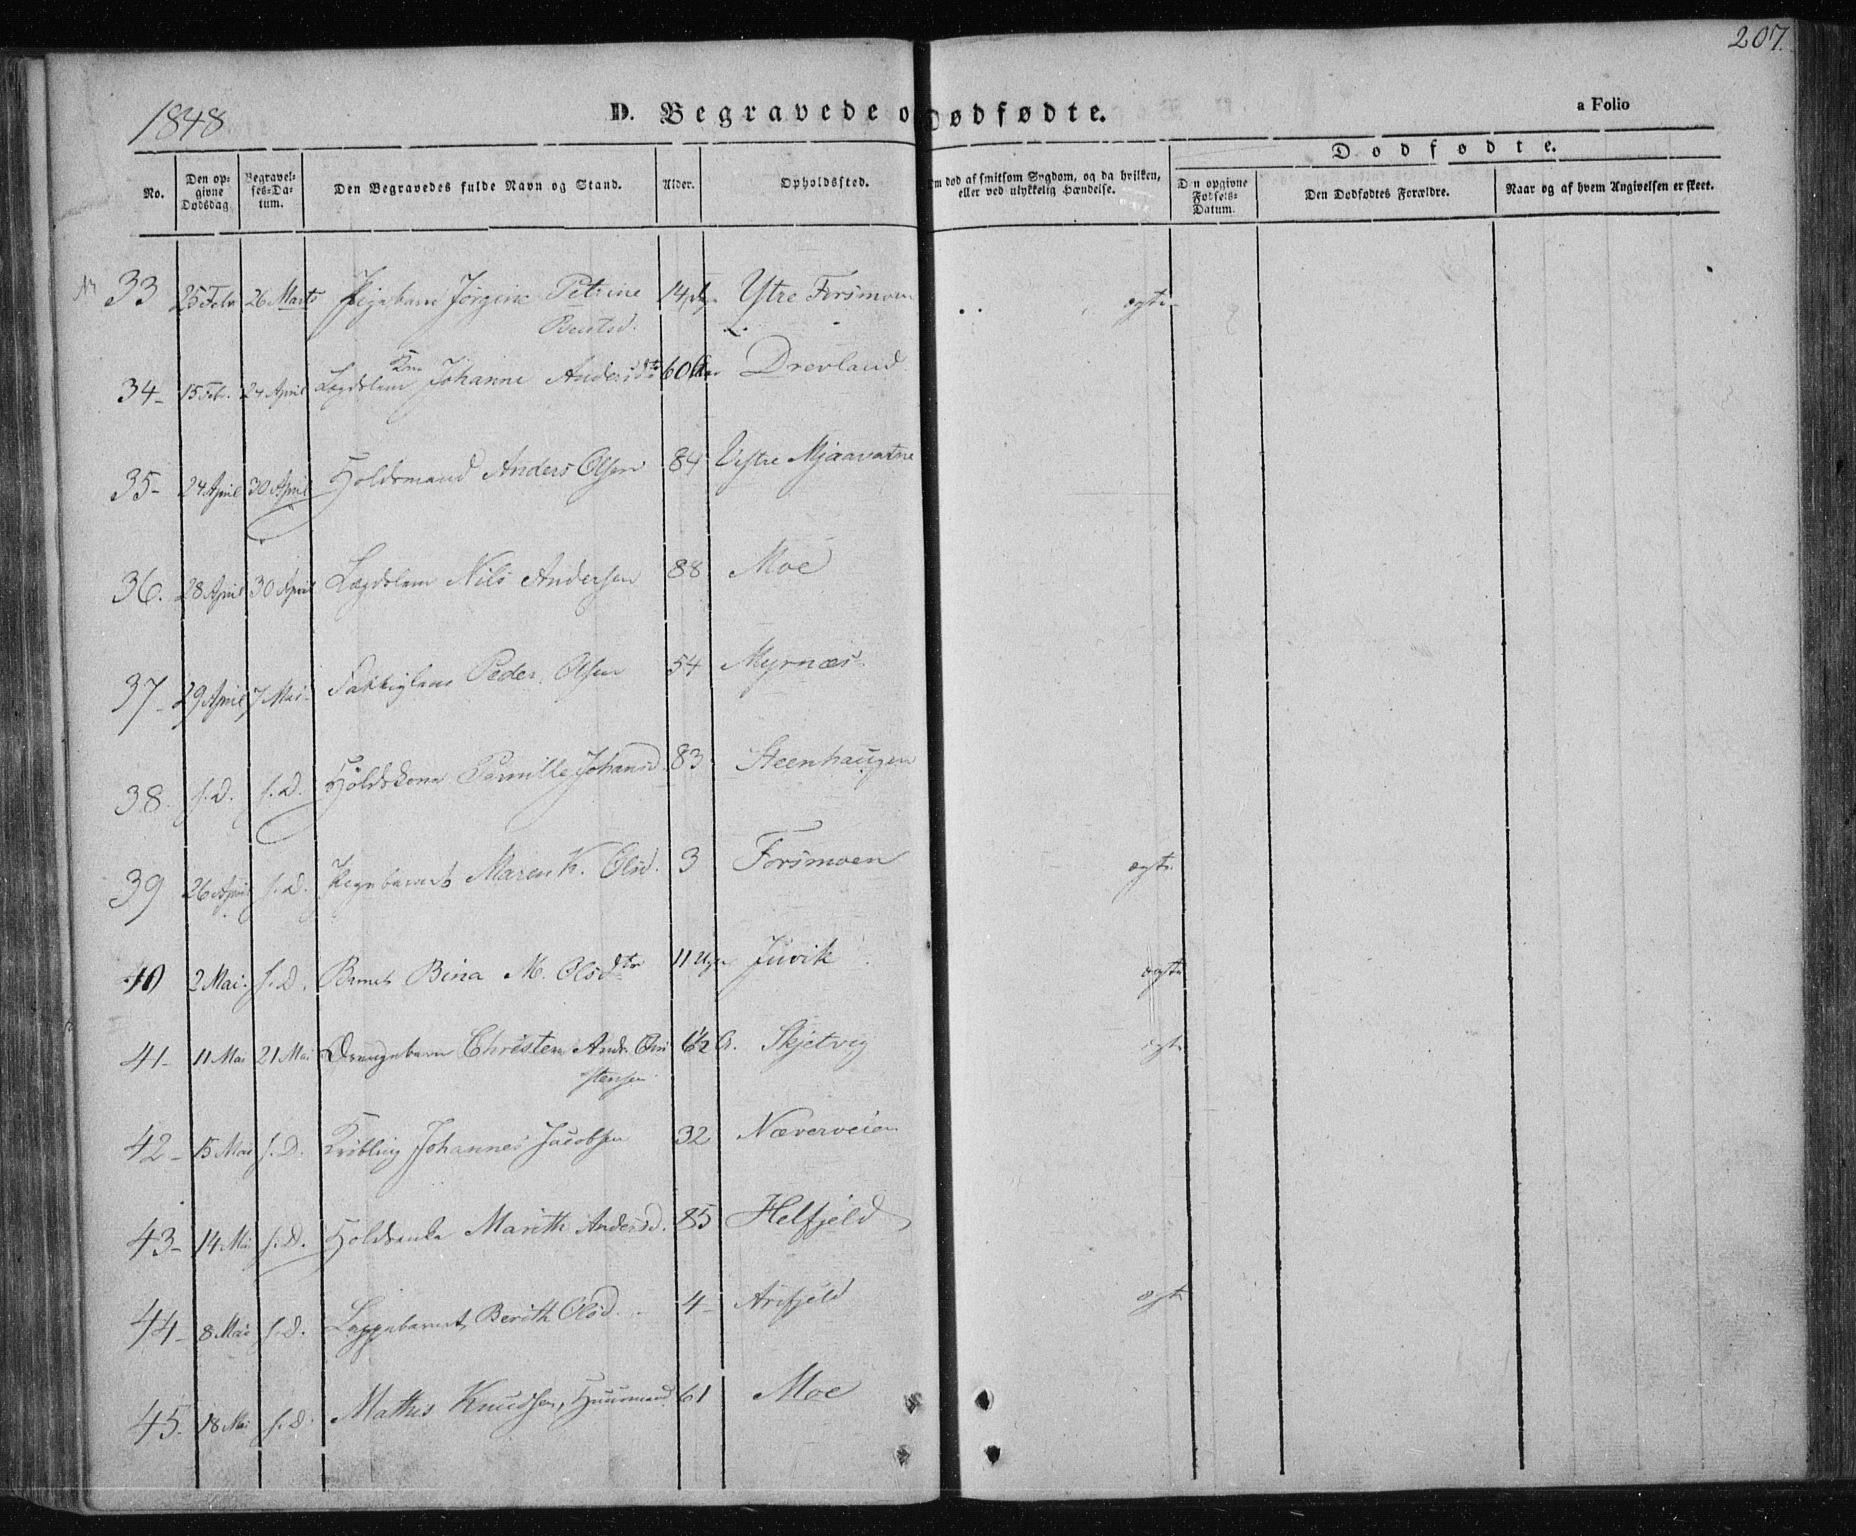 207.
1848
D. Begravede o Dødfødte.
a Folio
No.
Den opgivne Dødsdag
Begravelses-Datum.
Den Begravedes fulde Navn og Stand.
Alder.
Opholdssted.
Om død af smitsom Sygdom, og da hvilken, eller ved ulykkelig Hændelse.
Dødfødte.
Den opgivne Fødsels-Datum.
Den Dødfødtes Forældre.
Naar og af hvem Angivelsen er skeet.
33 25 Febr 26 Marts Pigebarn Jörgine Petrine 14 Ytre Forsmoen ægte
Bentsd.
34- 15 Febr. 24 April Lægdslem Kne Johanne Andersdtr 60 Aar Drevland
35- 24 April 30 April Holdsmand Anders Olsen 84 Vestre Mjaavatne
36. 28 April 30 April Lægdslem Nils Andersen 88 Moe
37- 29 April 7 Mai Fattiglem Peder Olsen 54 Myrnæs
38. s.D. s.D. Holdskone Pernille Johansd. 83 Steenhaugen
39 26 April s.D. Pigebarnet Maren K. Olsd. 3 Forsmoen ægte
40 2 Mai s.D. Barnet Bina M. Olsdtr 11 Uger Juvik ægte
41- 11 Mai 21 Mai Drengebarn Christen Andr. Chri 6 1/2 A. Skjetvig ægte
stensen
42- 15 Mai s.D. Johannes Jacobsen 32 Næverveien
43- 14 Mai s.D. Holdsenke Marith Andersd. 85 Helfjeld
44- 8 Mai s.D. Lappebarnet Berith Olsd. 4- Arefjeld ægte
45. 18 Mai s.D. Mathis Knudsen, Huusmand 61 Moe